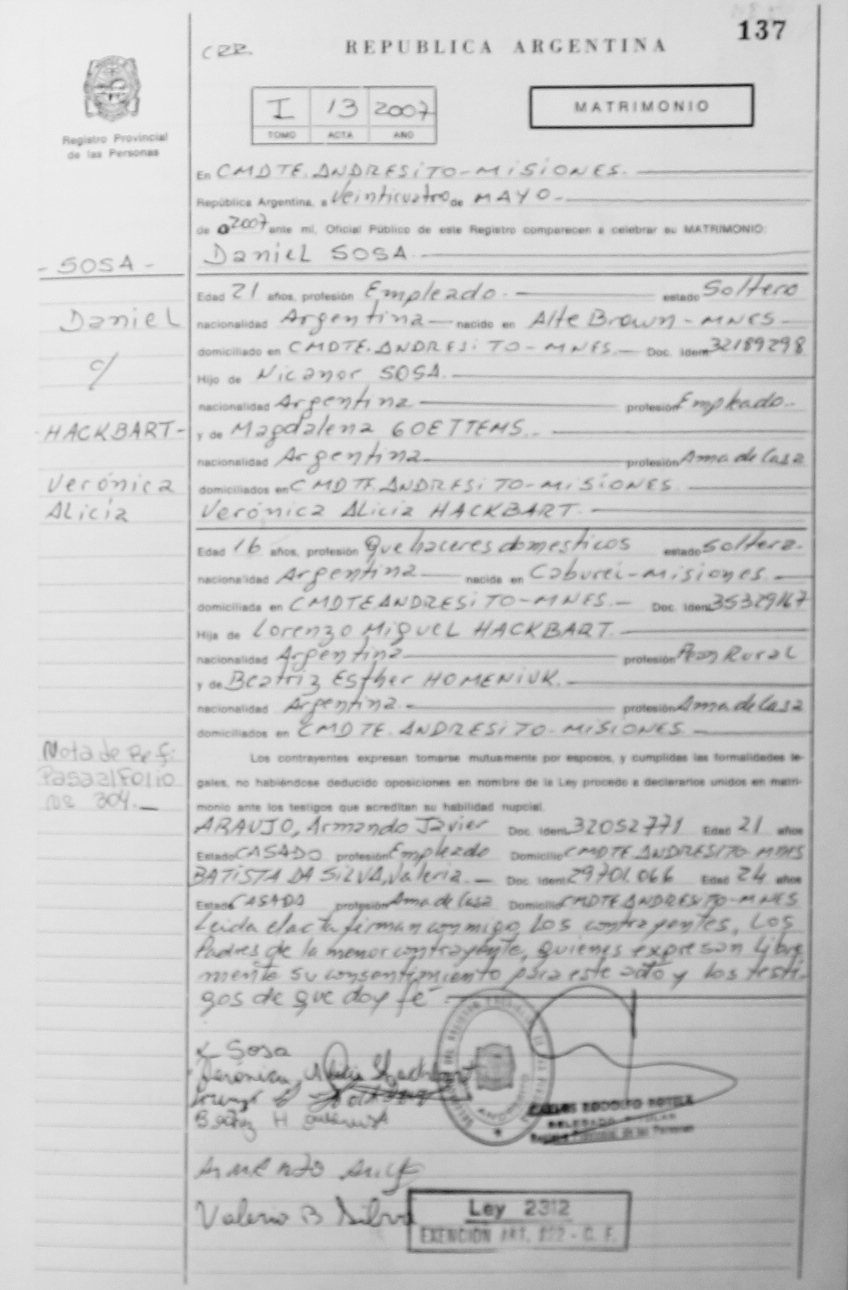 137
CRR
REPUBLICA ARGENTINA
Registro Provincial
de las Personas
I 13 2007
TOMO ACTA AÑO
MATRIMONIO
En CMDTE. ANDRESITO - MISIONES.
República Argentina, a Veinticuatro de MAYO
de 2007 ante mí, Oficial Público de este Registro comparecen a celebrar su MATRIMONIO:
Daniel SOSA
- SOSA -
Daniel
c/
- HACKBART -
Verónica
Alicia
Edad 21 años, profesión Empleado. estado Soltero
nacionalidad Argentina nacido en Alte Brown - MNES
domiciliado en CMDTE. ANDRESITO - MNES. Doc. Ident. 32189298
Hijo de Nicanor SOSA.
nacionalidad Argentina profesión Empleado.
y de Magdalena GOETTEMS.
nacionalidad Argentina profesión Ama de Casa
domiciliados en CMDTE. ANDRESITO - MISIONES.
Verónica Alicia HACKBART.
Edad 16 años, profesión Que haceres domesticos estado Soltera.
nacionalidad Argentina nacida en Caburei - Misiones.
domiciliada en CMDTE ANDRESITO - MNES. Doc. Ident. 35329167
Hija de Lorenzo Miguel HACKBART.
nacionalidad Argentina profesión Peon Rural
y de Beatriz Esther HOMENIUK.
nacionalidad Argentina. profesión Ama de Casa
domiciliados en CMDTE. ANDRESITO - MISIONES.
Nota de Ref:
Pasa al Folio
Nº 304.
Los contrayentes expresan tomarse mutuamente por esposos, y cumplidas las formalidades le-
gales, no habiéndose deducido oposiciones en nombre de la Ley procedo a declararlos unidos en matri-
monio ante los testigos que acreditan su habilidad nupcial.
ARAUJO, Armando Javier Doc. Ident. 32052771 Edad 21 años
Estado CASADO profesión Empleado Domicilio CMDTE ANDRESITO - MNES
BATISTA DA SILVA, Valeria. Doc. Ident. 29701.066 Edad 24 años
Estado CASADA profesión Ama de Casa Domicilio CMDTE ANDRESITO - MNES
Leida el acta firman conmigo los contrayentes, los
Padres de la menor contrayente, quienes expresan libre
mente su consentimiento para este acto y los testi-
gos de que doy fe
Sosa
Verónica Alicia Hackbart
CARLOS RODOLFO BOTELA
DELEGADO TITULAR
Registro Provincial de las Personas
Valeria B Silva
Ley 2312
EXENCION ART. - C. F.